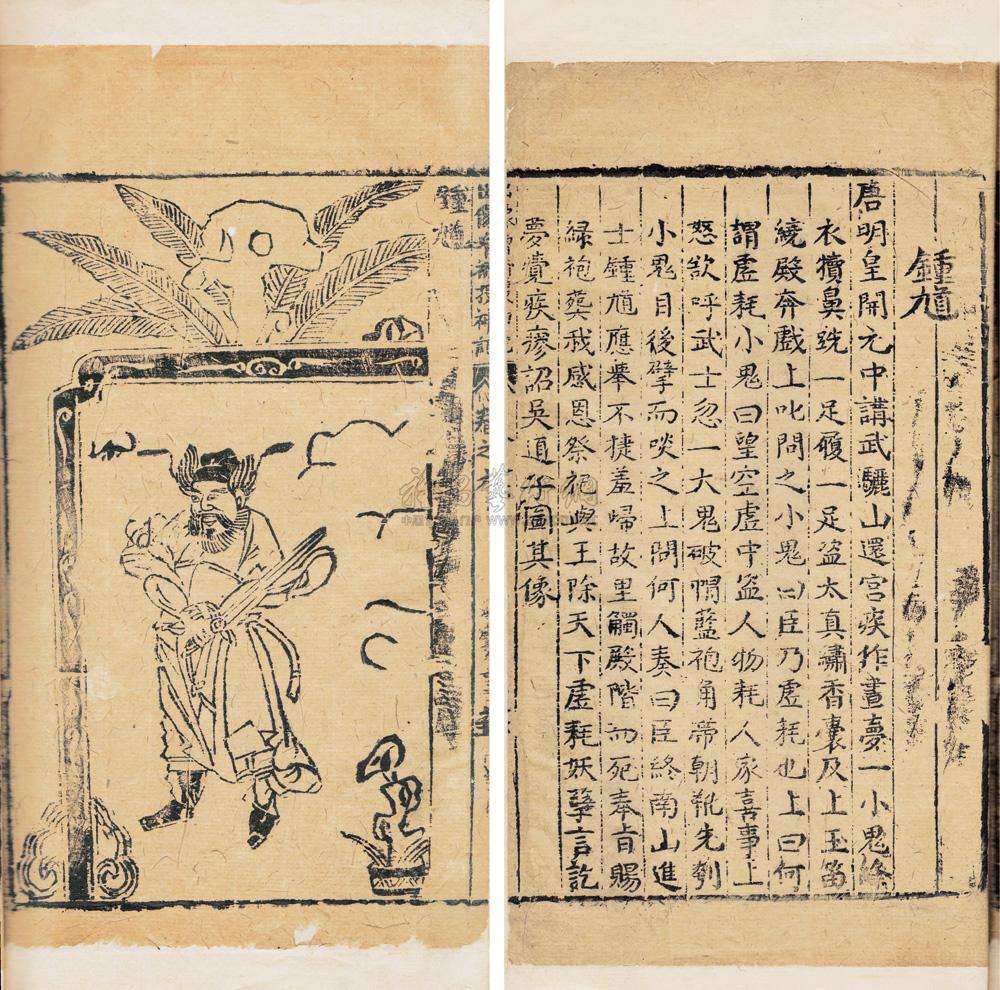 鍾馗
唐明皇開元中講武驪山還宮疾作晝夢一小鬼絳
衣犢鼻跣一足履一足盗太真繡香囊及上玉笛
繞殿奔戲上叱問之小鬼曰臣乃虛耗也上曰何
謂虛耗小鬼曰望空虛中盗人物耗人家喜事上
怒欲呼武士忽一大鬼破帽藍袍角帶朝靴先刳
小鬼目後擘而啖之上問何人奏曰臣終南山進
士鍾馗應舉不捷羞歸故里觸殿階而死奉旨賜
緑袍葬我感恩祭祀與王除天下虛耗妖孽言訖
夢覺疾瘳詔吳道子圖其像
鍾馗
卷之六